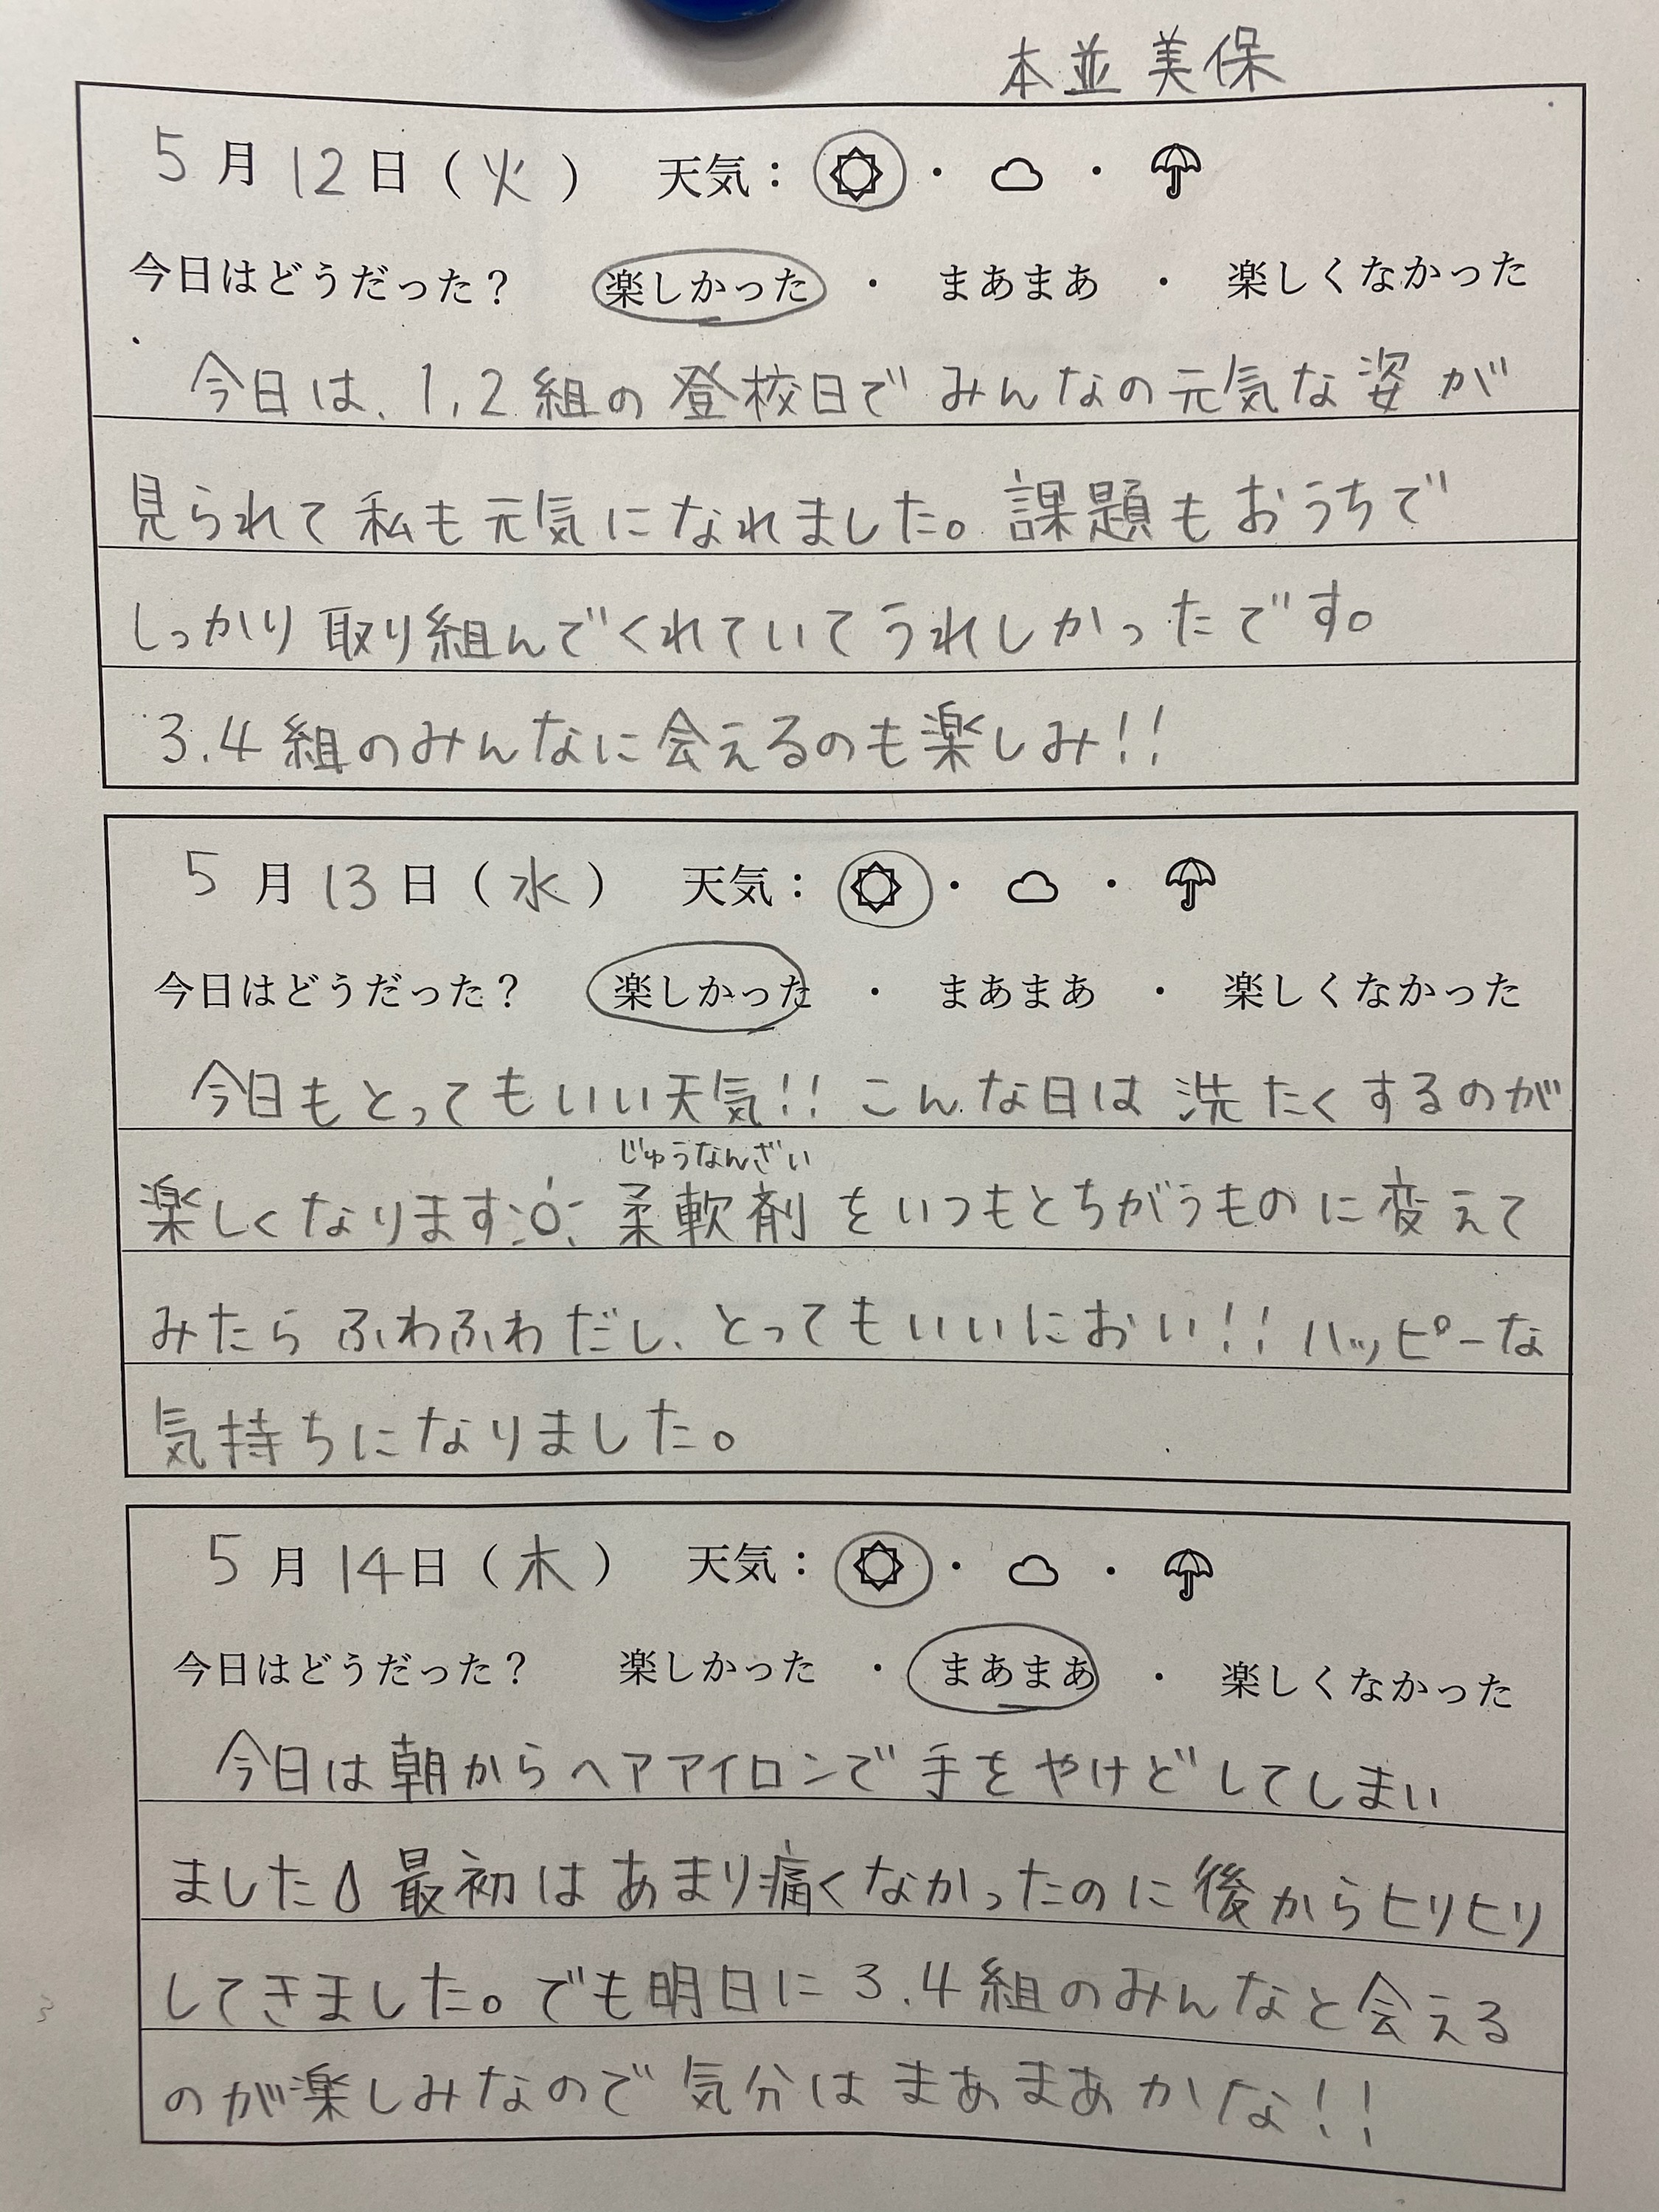 本並 美保
5月12日(火) 天気：☼・☁・☂
今日はどうだった？ 楽しかった ・ まあまあ ・ 楽しくなかった
今日は、1,2組の登校日でみんなの元気な姿が
見られて私も元気になれました。課題もおうちで
しっかり取り組んでくれていてうれしかったです。
3.4組のみんなに会えるのも楽しみ!!
5月13日(水) 天気：☼・☁・☂
今日はどうだった？ 楽しかった ・ まあまあ ・ 楽しくなかった
今日もとってもいい天気!! こんな日は洗たくするのが
じゅうなんざい
楽しくなります☼ 柔軟剤をいつもとちがうものに変えて
みたらふわふわだし、とってもいいにおい!! ハッピーな
気持ちになりました。
5月14日(木) 天気：☼・☁・☂
今日はどうだった？ 楽しかった ・ まあまあ ・ 楽しくなかった
今日は朝からヘアアイロンで手をやけどしてしまい
ました💧最初はあまり痛くなかったのに後からヒリヒリ
してきました。でも明日に3.4組のみんなと会える
のが楽しみなので気分はまあまあかな!!